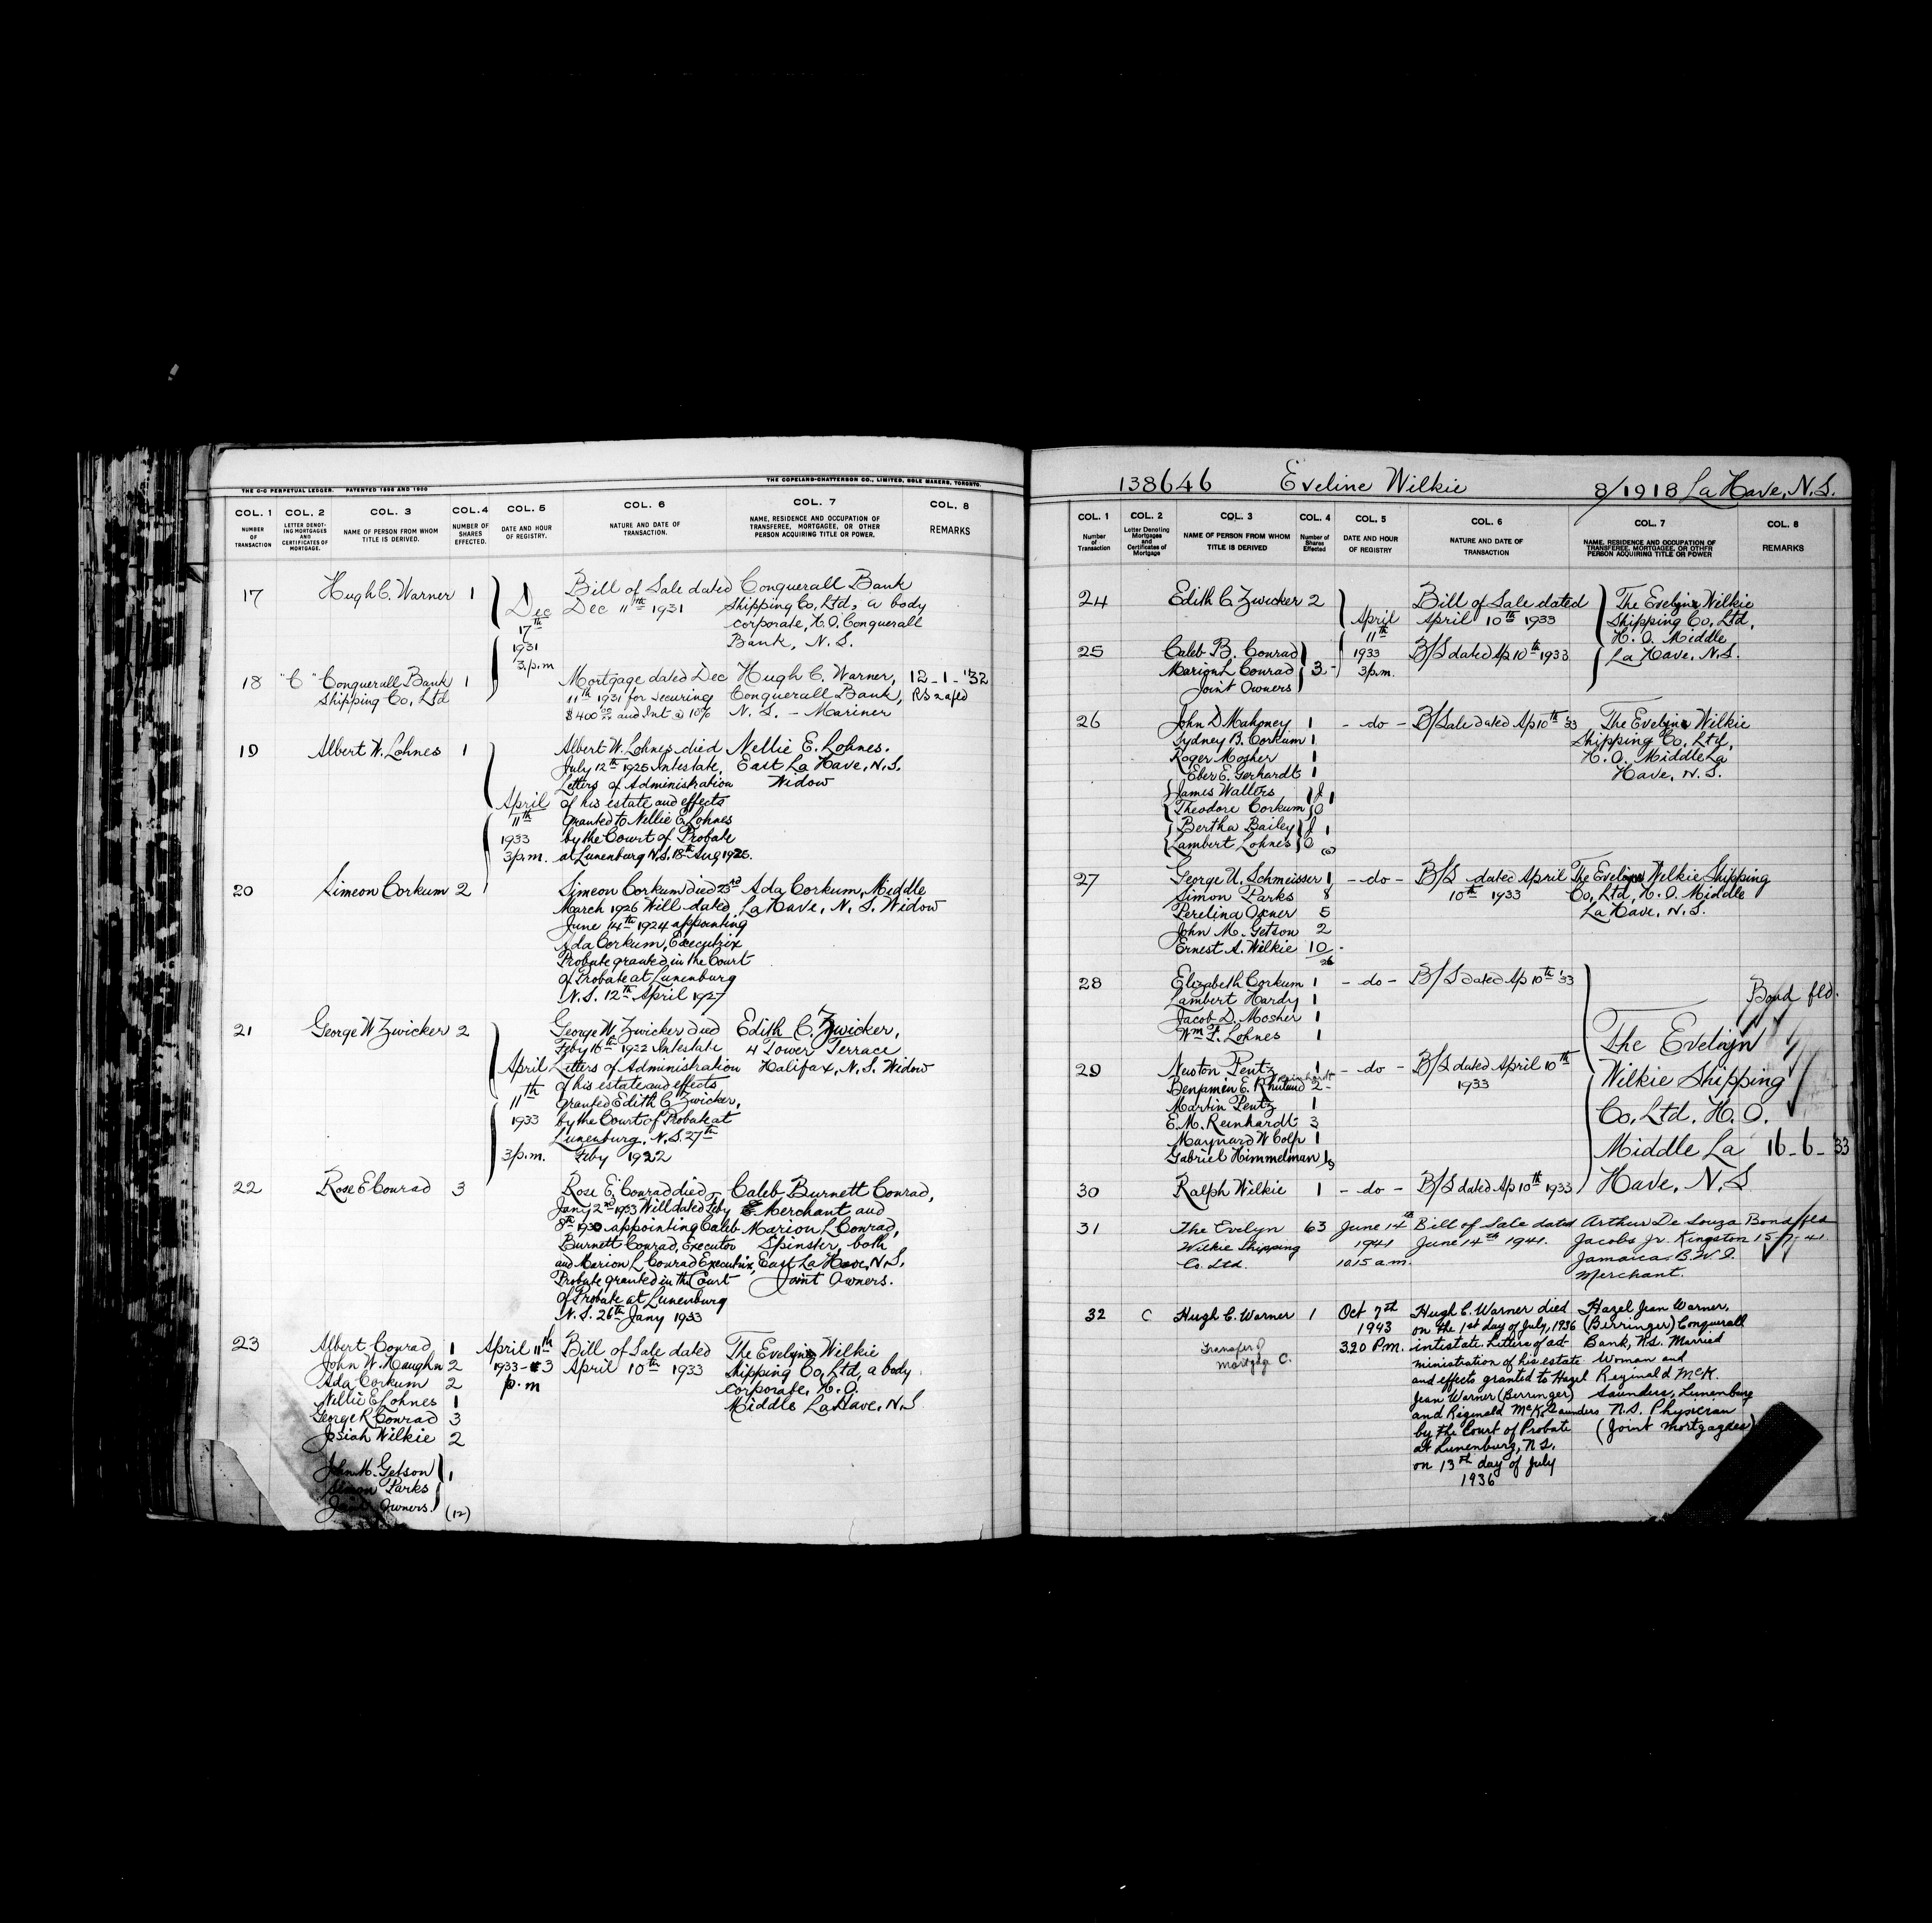 THE C-C PERPETUAL LEDGER. PATENTED 1898 AND 1900
THE COPELAND-CHATTERSON CO., LIMITED, SOLE MAKERS, TORONTO.
COL. 1 COL. 2 COL. 3 COL. 4 COL. 5 COL. 6 COL. 7 COL. 8
NUMBER OF TRANSACTION
LETTER DENOTING MORTGAGES AND CERTIFICATES OF MORTGAGE.
NAME OF PERSON FROM WHOM TITLE IS DERIVED.
NUMBER OF SHARES EFFECTED.
DATE AND HOUR OF REGISTRY.
NATURE AND DATE OF TRANSACTION.
NAME, RESIDENCE AND OCCUPATION OF TRANSFEREE, MORTGAGEE, OR OTHER PERSON ACQUIRING TITLE OR POWER.
REMARKS
17 Hugh C. Warner 1
Dec
17th
1931
3.p.m
Bill of Sale dated
Dec 11th 1931
Conquerall Bank
Shipping Co, Ltd, a body
corporate, H.O. Conquerall
Bank, N.S.
18 "C" Conquerall Bank 1
Shipping Co, Ltd
Mortgage dated Dec
11th 1931 for securing
$400 00 and Int @ 10%
Hugh C. Warner,
Conquerall Bank,
N.S. - Mariner
12-1-'32
19 Albert W. Lohnes 1
April
11th
1933
3p.m.
Albert W. Lohnes died
July 12th 1925 Intestate,
Letters of Administration
of his estate and effects
Granted to Nellie E Lohnes
by the Court of Probate
at Lunenburg N.S. 18th Aug 1925.
Nellie E. Lohnes.
East La Have, N.S.
Widow
20 Simeon Corkum 2
Simeon Corkum died 23rd
March 1926 Will dated
June 14th 1924 appointing
Ada Corkum, Executrix
Probate granted in the Court
of Probate at Lunenburg
N.S. 12th April 1927
Ada Corkum, Middle
La Have, N.S. Widow
21 George W Zwicker 2
April
11th
1933
3p.m.
George W. Zwicker died
Feby 16th 1922 Intestate
Letters of Administration
of his estate and effects
granted Edith C Zwicker,
by the Court of Probate at
Lunenburg, N.S. 27th
Feby 1922
Edith C. Zwicker,
4 Tower Terrace
Halifax, N.S. Widow
22 Rose E Conrad 3
Rose E. Conrad died
Jany 2nd 1933 Will dated Feby
8th 1930 appointing Caleb
Burnett Conrad, Executor
and Marion L Conrad Executrix,
Probate granted in the Court
of Probate at Lunenburg
N.S. 26th Jany 1933
Caleb Burnett Conrad,
Merchant and
Marion L Conrad,
Spinster, both
East La Have, N.S.
Joint Owners.
23 Albert Conrad 1
John W. Naughn 2
Ada Corkum 2
Nellie E Lohnes 1
George R Conrad 3
Josiah Wilkie 2
John M. Getson } 1
Simon Parks
Joint Owners. (12)
April 11th
1933 - 3
p.m
Bill of Sale dated
April 10th 1933
The Evelyn Wilkie
Shipping Co, Ltd, a body
corporate, H.O.
Middle La Have, N.S
138646 Eveline Wilkie 8/1918 La Have, N.S.
COL. 1 COL. 2 COL. 3 COL. 4 COL. 5 COL. 6 COL. 7 COL. 8
Number of Transaction
Letter Denoting Mortgages and Certificates of Mortgage
NAME OF PERSON FROM WHOM TITLE IS DERIVED
Number of Shares Effected
DATE AND HOUR OF REGISTRY
NATURE AND DATE OF TRANSACTION
NAME, RESIDENCE AND OCCUPATION OF TRANSFEREE, MORTGAGEE, OR OTHER PERSON ACQUIRING TITLE OR POWER
REMARKS
24 Edith C Zwicker 2
April
11th
1933
3p.m.
Bill of Sale dated
April 10th 1933
The Evelyn Wilkie
Shipping Co, Ltd,
H.O. Middle
La Have, N.S.
25 Caleb B. Conrad
Marion L Conrad } 3-
Joint Owners
B/S dated Ap 10th 1933
26 John D Mahoney 1
Sydney B. Corkum 1
Roger Mosher 1
Eber E. Gerhardt 1
James Walters } J 1
Theodore Corkum } O
Bertha Bailey } J 1
Lambert Lohnes } O (6)
- do -
B/Sale dated Ap 10th '33
The Evelyn Wilkie
Shipping Co, Ltd,
H.O. Middle La
Have, N.S.
27 George U. Schmeisser 1
Simon Parks 8
Perelina Oxner 5
John M. Getson 2
Ernest A. Wilkie 10
26
- do -
B/S dated April
10th 1933
The Evelyn Wilkie Shipping
Co, Ltd, H.O. Middle
La Have, N.S.
28 Elizabeth Corkum 1
Lambert Hardy 1
Jacob D. Mosher 1
Wm F. Lohnes 1
- do -
B/S dated Ap 10th '33
29 Newton Pentz 1
Benjamin E. Reinhardt 2-
Martin Pentz 1
E.M. Reinhardt 3
Maynard W Colp 1
Gabriel Himmelman 1
9
- do -
B/S dated April 10th
1933
The Evelyn
Wilkie Shipping
Co, Ltd. H.O.
Middle La
Have, N.S
Bond fld.
16-6-'33
30 Ralph Wilkie 1 - do - B/S dated Ap 10th 1933
31 The Evelyn 63
Wilkie Shipping
Co. Ltd.
June 14th
1941
10.15 a.m.
Bill of Sale dated
June 14th 1941.
Arthur De Souza
Jacobs Jr. Kingston
Jamaica B.W.I.
Merchant.
Bond fld
15-7-41
32 C Hugh C. Warner 1
Transfer of
mortgage C.
Oct 7th
1943
3.20 P.m.
Hugh C. Warner died
on the 1st day of July, 1936
intestate. Letters of ad-
ministration of his estate
and effects granted to Hazel
Jean Warner (Berringer)
and Reginald McK. Saunders
by the Court of Probate
at Lunenburg, N.S.
on 13th day of July
1936
Hazel Jean Warner,
(Berringer) Conquerall
Bank, N.S. Married
Woman and
Reginald McK.
Saunders, Lunenburg
N.S. Physician
(Joint Mortgagees)